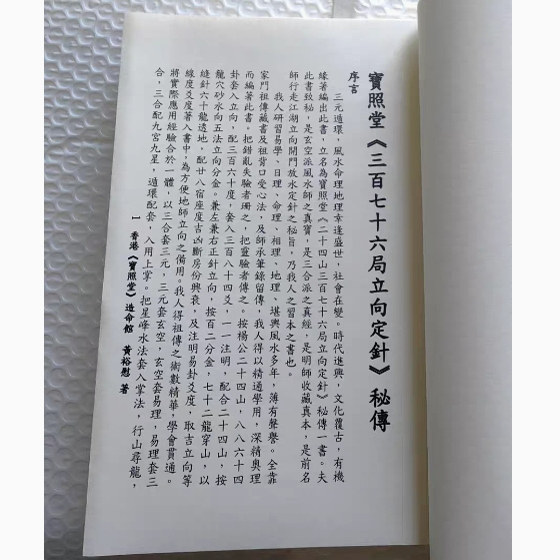 寶照堂《三百七十六局立向定針》秘傳
序言
三元遁環，風水命理地理幸逢盛世，社會在變。時代進興，文化覆古，有機
緣著編出此書，立名為寶照堂《二十四山三百七十六局立向定針》秘傳一書。夫
此書致祕，是玄空派風水師之真寶，是三合派之真經，是明師收藏真本，是前名
師行走江湖立向開門放水定針之秘旨，乃我人之習本之書也。
我人研習易學、日理、命理、相理、地理、堪輿風水多年，薄有聲譽。全靠
家門祖傳藏書及祖背口受心法，及師承筆錄留傳，我人得以精通學用，深精奧理
而編著此書。把錯亂失驗者珊之，把靈驗者傳之。按楊公二十四山，八八六十四
卦套入立向，配三百六十度，套八三百八十四爻，一一注明，配合二十四山，按
龍穴砂水向五法立向分金。兼左兼右正針立向，按百二分金，七十二龍穿山，以
縫針六十龍透地，配廿八宿座度吉凶斷房份興衰，及注明易卦爻度，取吉立向等
線度爻度著入書中，為方便地師立向之備用。我人得祖傳之術數精華，學會貫通。
將實際應用經驗合於一體，以三合套三元，三元套玄空，玄空套易理，易理套三
合，三合配九宮九星，遁環配套，入用上掌。把星峰水法套入掌法，行山尋龍，
香港《寶照堂》造命館 黃裕慰 著
1